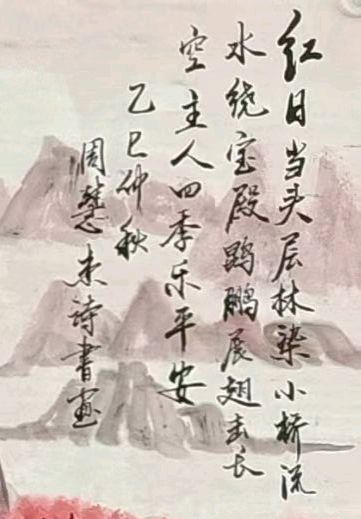 红日当头层林染小桥流
水绕宝殿鹍鹏展翅击长
空主人四季乐平安
乙巳仲秋
周慧来诗书画